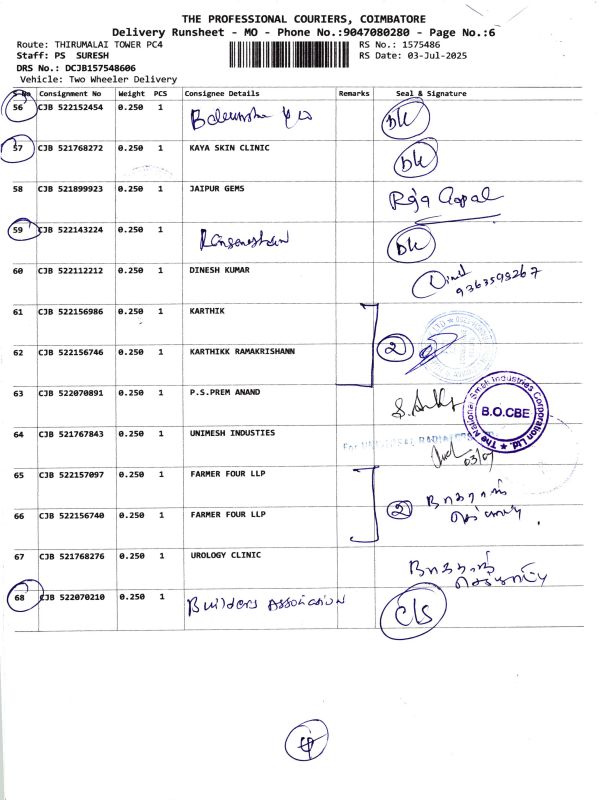 THE PROFESSIONAL COURIERS, COIMBATORE
Delivery Runsheet - MO - Phone No.:9047080280 - Page No.:6
Route: THIRUMALAI TOWER PC4
RS No.: 1575486
Staff: PS SURESH
RS Date: 03-Jul-2025
DRS No.: DCJB157548606
Vehicle: Two Wheeler Delivery
S No Consignment No Weight PCS Consignee Details Remarks Seal & Signature
56 CJB 522152454 0.250 1
57 CJB 521768272 0.250 1 KAYA SKIN CLINIC
58 CJB 521899923 0.250 1 JAIPUR GEMS Raja Gopal
59 CJB 522143224 0.250 1
60 CJB 522112212 0.250 1 DINESH KUMAR
61 CJB 522156986 0.250 1 KARTHIK
62 CJB 522156746 0.250 1 KARTHIKK RAMAKRISHANN 2
63 CJB 522070891 0.250 1 P.S.PREM ANAND
The National Small Industries Corporation Ltd.
B.O.CBE
64 CJB 521767843 0.250 1 UNIMESH INDUSTIES
65 CJB 522157097 0.250 1 FARMER FOUR LLP
66 CJB 522156740 0.250 1 FARMER FOUR LLP 2
67 CJB 521768276 0.250 1 UROLOGY CLINIC
68 CJB 522070210 0.250 1 Builders Association